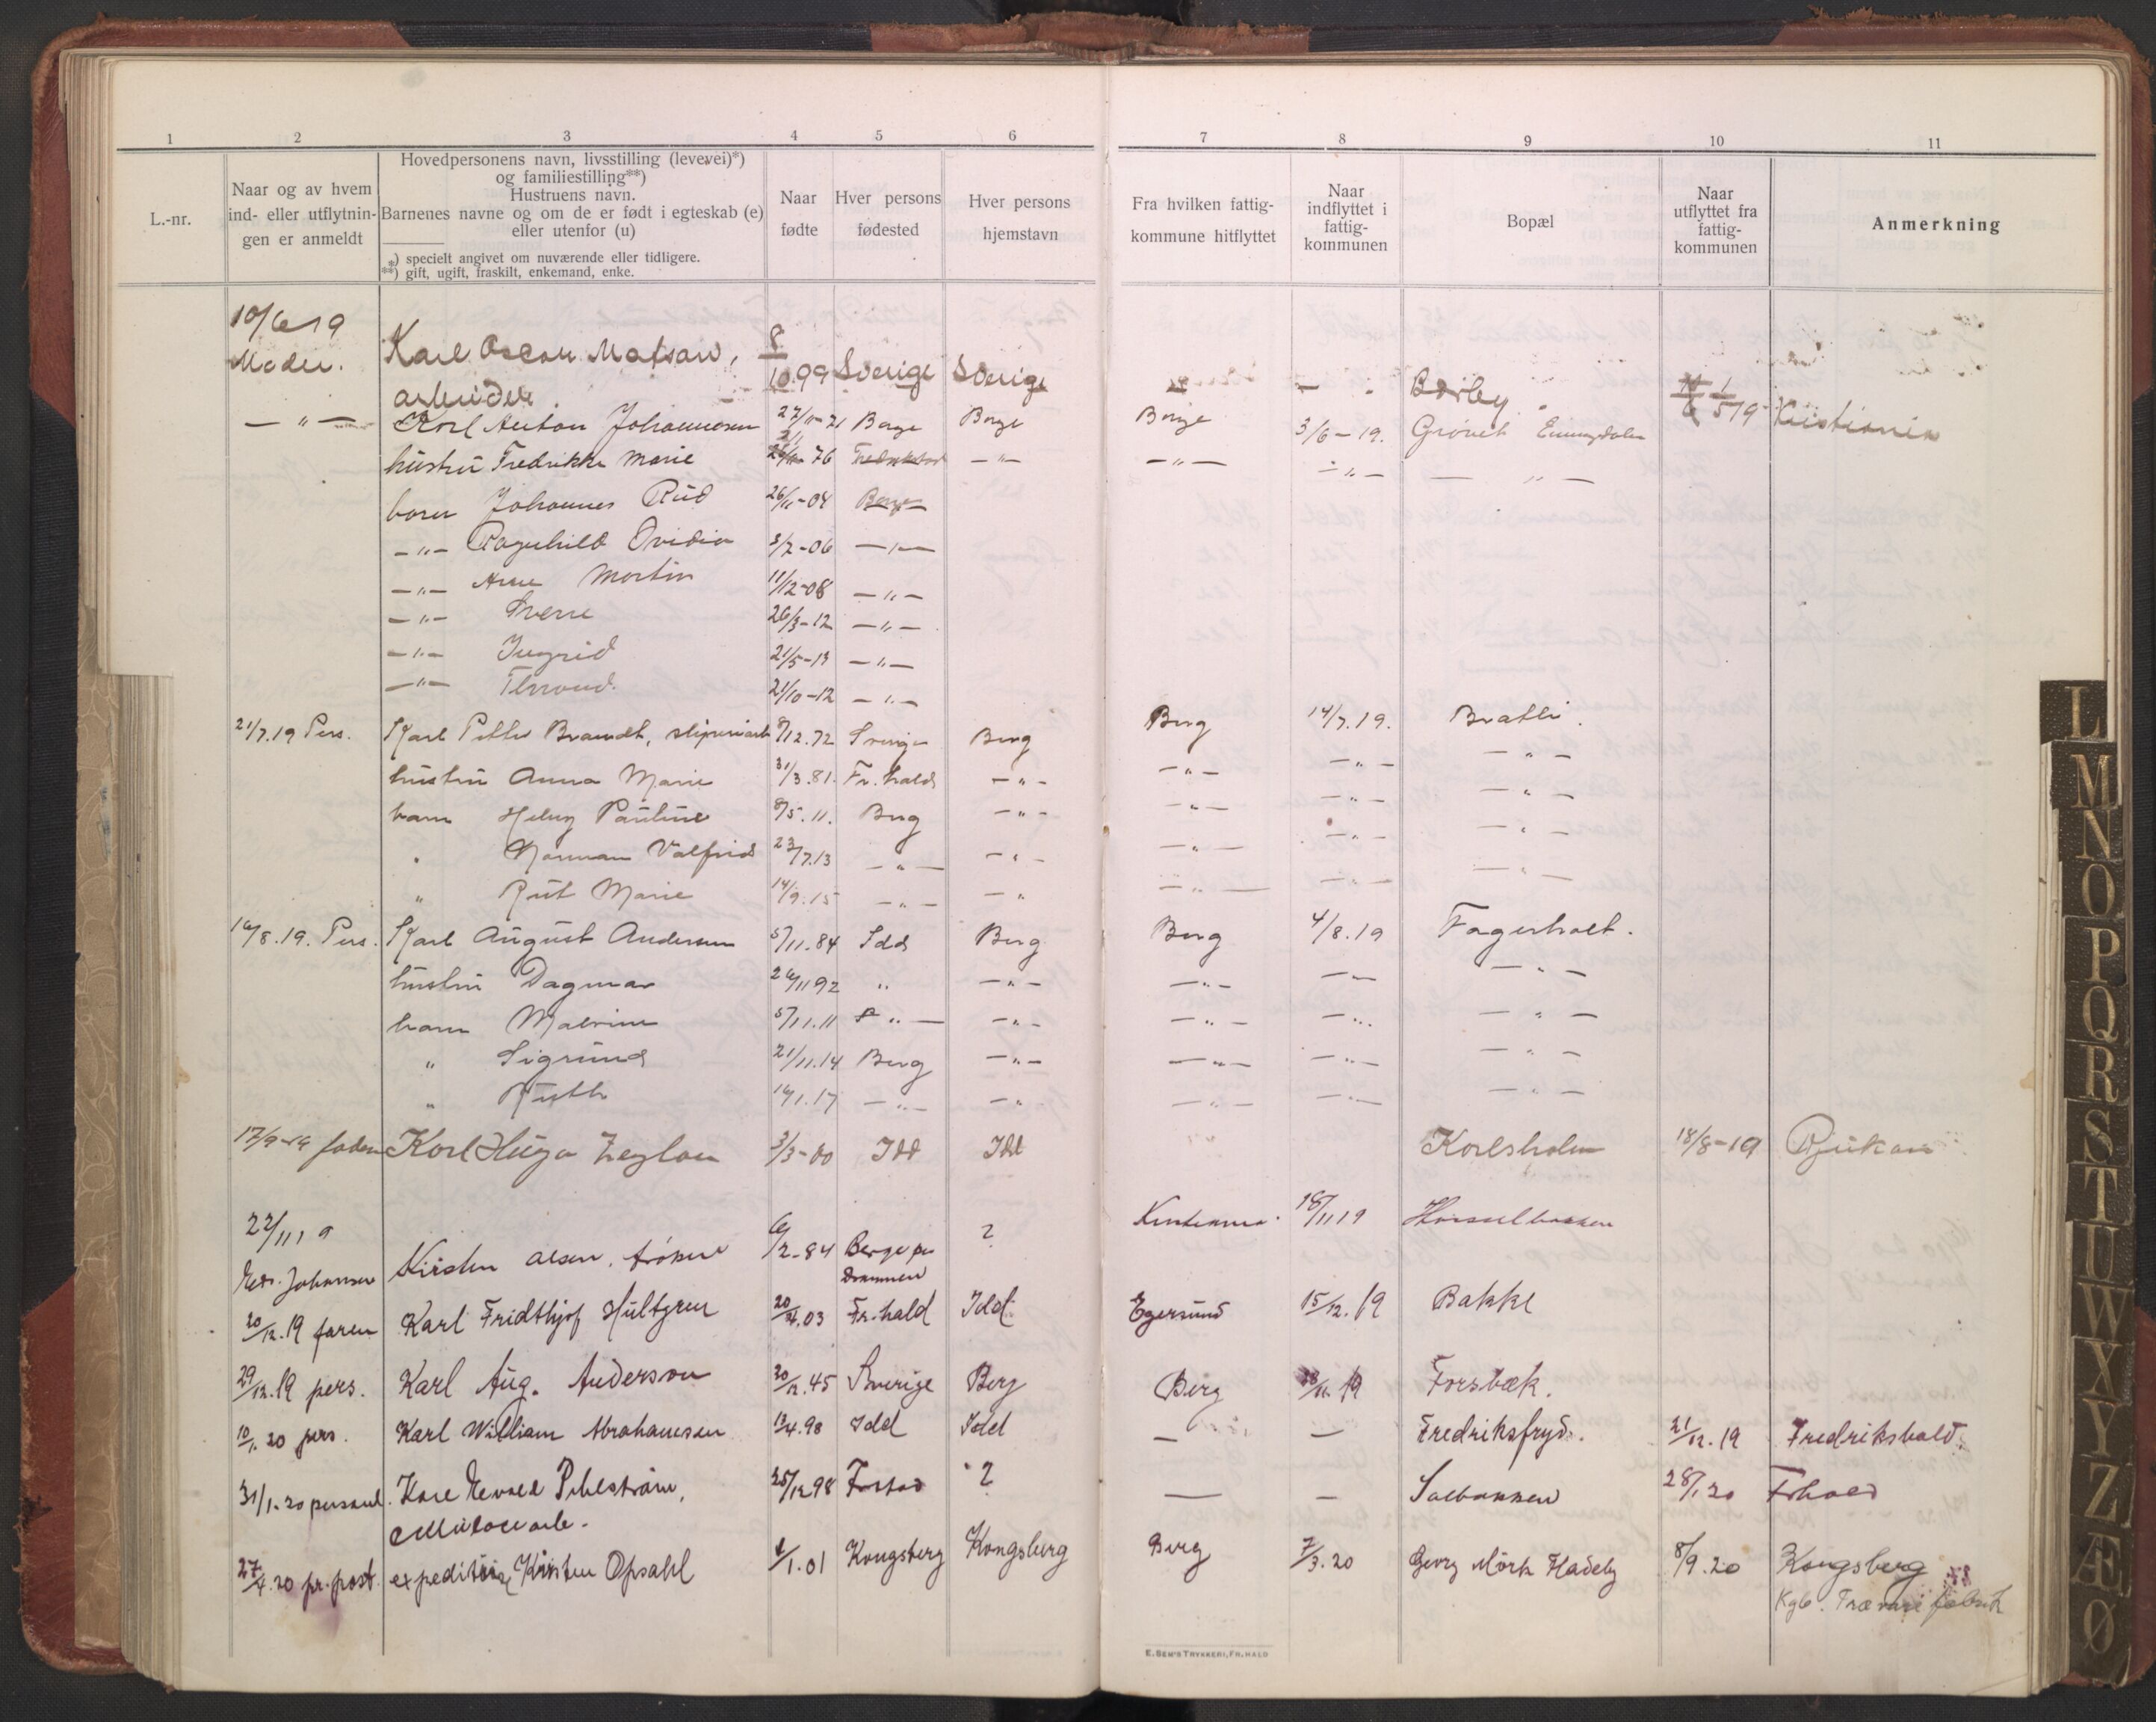 1 2 3 4 5 6 7 8 9 10 11
L.-nr.
Naar og av hvem
ind- eller utflytnin-
gen er anmeldt
Hovedpersonens navn, livsstilling (levevei)*)
og familiestilling**)
Hustruens navn.
Barnenes navne og om de er født i egteskab (e)
eller utenfor (u)
*) specielt angivet om nuværende eller tidligere.
**) gift, ugift, fraskilt, enkemand, enke.
Naar
fødte
Hver persons
fødested
Hver persons
hjemstavn
Fra hvilken fattig-
kommune hitflyttet
Naar
indflyttet i
fattig-
kommunen
Bopæl
Naar
utflyttet fra
fattig-
kommunen
Anmerkning
10/6 19
Moder. Karl Oscar Matson, 8/10 99 Sverige Sverige — — Børby 1/5 19 Kristiania
arbeider
— " — Karl Anton Johannesen 27/11-71 Borge Borge Borge 3/6-19. Grønet Enningdalen
hustru Fredrikke Marie 76 Fredrikstad — " — — " — — " — — " —
barn Johannes Rud 26/11-04 Borge
— " — Ragnhild Ovidia 3/2-06 — " —
— " — Arne Martin 11/12-08 — " —
— " — Sverre 26/3-12 — " —
— " — Ingrid 21/5-13 — " —
— " — 21/10-12 — " —
21/7.19 Pers. Karl Petter Brandt, sliperiarb 8/12.72 Sverige Berg Berg 14/7.19. Bratli.
hustru Anna Marie 31/3.81. Fr.hald — " — — " — — " — — " —
barn Helny Pauline 8/5.11. Berg — " — — " — — " — — " —
" Norman Valfrid 23/7.13 — " — — " — — " — — " — — " —
" Rut Marie 14/9.15 — " — — " — " — — " — — " —
16/8.19. Pers. Karl August Andersen 5/11.84 Idd Berg Berg 4/8.19 Fagerholt.
hustru Dagmar 26/11 92 " — " — — " — — " — — " —
barn Malvine 5/11.11 — " — — " — — " — — " — — " —
" Sigrund 21/11.14 Berg — " — — " — — " — — " —
" Ruth 16/1.17 — " — — " — " — — " — — " —
17/9-19 faderen Karl Hugo Zeylon 3/3-00 Idd Idd Karlsholm 18/8-19 Rjukan
22/11 19
Johansen Kirsten Olsen, frøken 6/2-84 Berge pr ? Kristiania. 18/11 19
Drammen
20/12.19 faren Karl Fridthjof Hultgren 20/4.03 Fr.hald Idd. Egersund 15/12.19 Bakke
29/12.19 pers. Karl Aug. Anderson 20/12.45 Sverige Berg Berg 19 Forsbæk.
10/1.20 pers. Karl William Abrahamsen 13/4.98 Idd Idd — — Fredriksfryd. 21/12.19 Fredrikshald.
31/1-20 personl. Kare Pihlstrøm, 25/12 98 ? — — Solbakken 28/1 20 Frhald
27/4.20 pr. post. expeditrice Kirsten Opsahl 4/1.01 Kongsberg Kongsberg Berg 7/3.20 Georg Mørk Hadeby 8/9.20 Kongsberg
Kgb. Trævarefabrik
E. SEM'S TRYKKERI, FR.HALD
L
M
N
O
P
Q
R
S
T
U
W
X
Y
Z
Æ
Ø